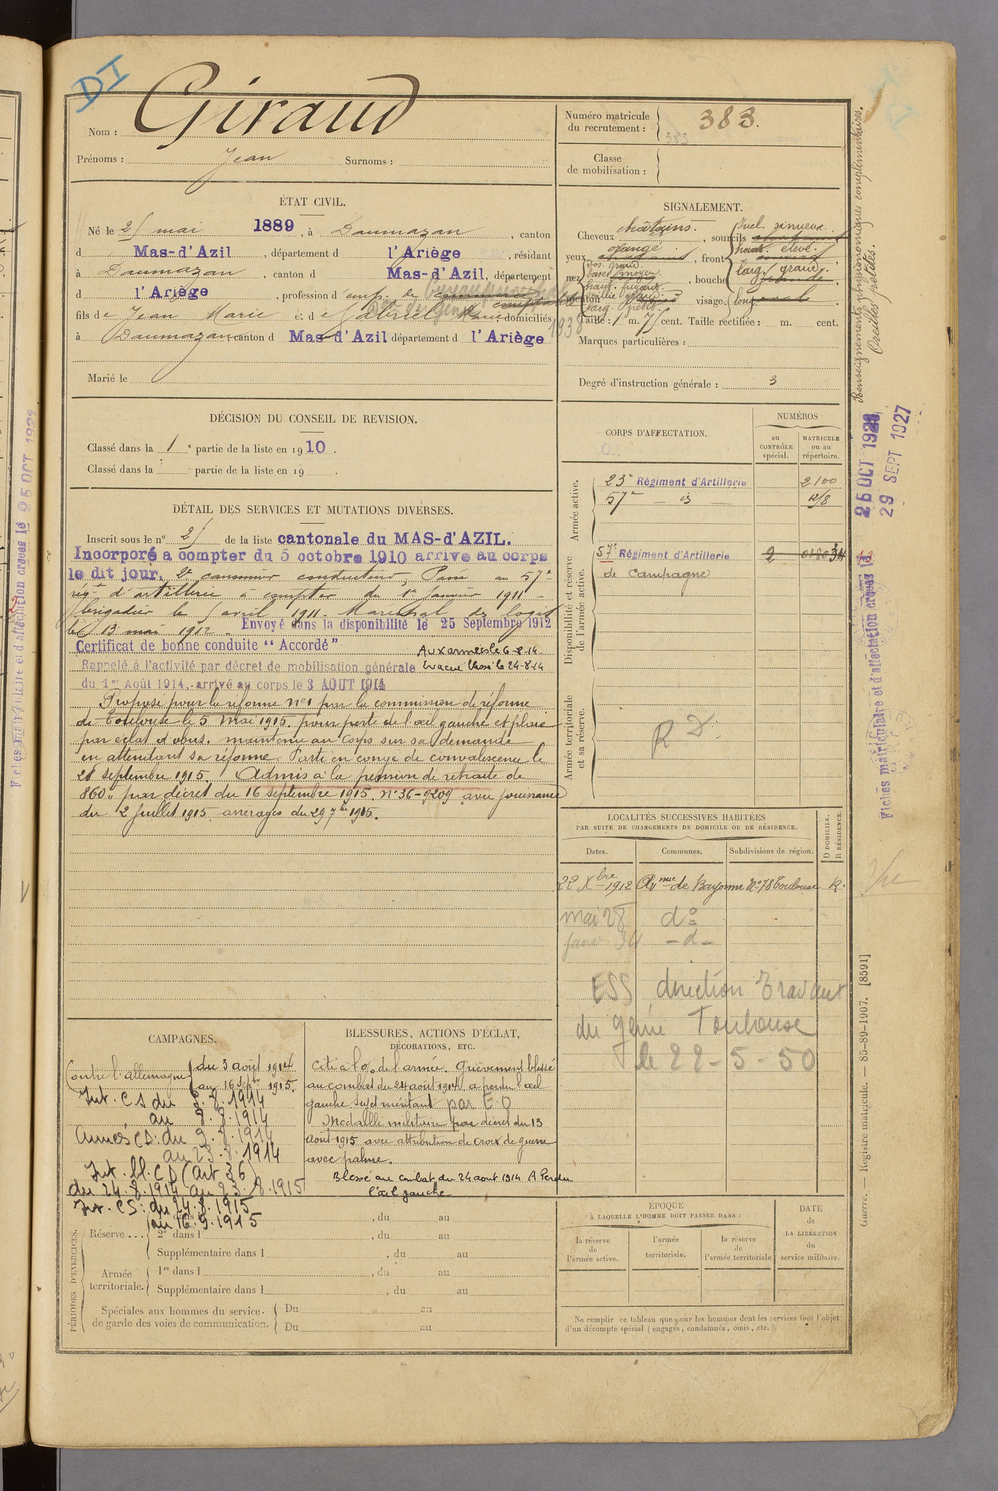 DI
Nom : Giraud
Prénoms : Jean Surnoms :
Numéro matricule du recrutement : 383.
Classe de mobilisation :
ÉTAT CIVIL.
Né le 21 mai 1889, à Daumazan, canton
d Mas-d'Azil, département d l'Ariège, résidant
à Daumazan, canton d Mas-d'Azil, département
d l'Ariège, profession d emp. de commerce
fils de Jean Marie et de Gabriel Marie domiciliés
à Daumazan canton d Mas-d'Azil département d l'Ariège
1938
Marié le
SIGNALEMENT.
Cheveux châtains, sourcils
yeux orangé, front
nez, bouche
menton, visage long
Taille : 1 m. 71 cent. Taille rectifiée : m. cent.
Marques particulières :
Degré d'instruction générale : 3
Renseignements physionomiques complémentaires.
Oreilles petites.
DÉCISION DU CONSEIL DE REVISION.
Classé dans la 1e partie de la liste en 1910.
Classé dans la partie de la liste en 19 .
CORPS D'AFFECTATION.
NUMÉROS
au CONTRÔLE spécial.
MATRICULE ou au répertoire.
Armée active.
23e Régiment d'Artillerie 2100
57e — id
Disponibilité et réserve de l'armée active.
57e Régiment d'Artillerie
de Campagne
Armée territoriale et sa réserve.
R D.
DÉTAIL DES SERVICES ET MUTATIONS DIVERSES.
Inscrit sous le n° 21 de la liste cantonale du MAS-d'AZIL.
Incorporé à compter du 5 octobre 1910 arrivé au corps
le dit jour, 2e canonnier conducteur, Passé au 57e
régt d'artillerie à compter du 1er Janvier 1911 -
Brigadier le 1 avril 1911 - Maréchal des logis
le 13 mai 1912 - Envoyé dans la disponibilité le 25 Septembre 1912
Certificat de bonne conduite "Accordé" Aux armées le 6-8-14
Rappelé à l'activité par décret de mobilisation générale Evacué blessé le 24-8-14
du 1er Août 1914, arrivé au corps le 3 AOUT 1914
Proposé pour la réforme n°1 par la commission de réforme
de Toulouse le 5 Mai 1915. pour perte de l'œil gauche
par éclat d'obus. maintenu au Corps sur sa demande
en attendant sa réforme. Parti en congé de convalescence le
28 septembre 1915. Admis à la pension de retraite de
860f par décret du 16 septembre 1915. n°36-9209 avec jouissance
du 2 Juillet 1915 arrérages du 29 7bre 1915.
25 OCT 1928
29 SEPT 1927
Fiches matriculaire et d'affectation créées le
LOCALITÉS SUCCESSIVES HABITÉES
PAR SUITE DE CHANGEMENTS DE DOMICILE OU DE RÉSIDENCE.
Dates. Communes. Subdivisions de région. D DOMICILE. R RÉSIDENCE.
22 Xbre 1912 Avnue de Bayonne N°78 Toulouse R.
mai 28 d°
janv 34 — d —
ESS direction Travaux
du génie Toulouse
le 22-5-50
CAMPAGNES.
Contre l'Allemagne du 3 août 1914
au 16 Sept. 1915.
Int. CS du 3.8.1914
au 8.8.1914
Armées CD: du 9.8.1914
au 23.8.1914
Int. bl. CD (Art 36)
du 24.8.1914 au 23.8.1915
Int. CS: du 24.8.1915
au 16.9.1915
BLESSURES, ACTIONS D'ÉCLAT,
DÉCORATIONS, ETC.
Cité à l'o/ de l'armée. Grièvement blessé
au combat du 24 août 1914 a perdu l'œil
gauche sujet méritant par E.O
Médaille militaire par décret du 13
août 1915 avec attribution de croix de guerre
avec palme.
Blessé au combat du 24 août 1914 A Perdu
l'œil gauche
PÉRIODES D'EXERCICES.
Réserve... 2e dans l , du au
Supplémentaire dans l , du au
Armée territoriale. 1re dans l , du au
Supplémentaire dans l , du au
Spéciales aux hommes du service de garde des voies de communication. Du au
Du au
ÉPOQUE
À LAQUELLE L'HOMME DOIT PASSER DANS :
la réserve de l'armée active.
l'armée territoriale.
la réserve de l'armée territoriale
DATE de LA LIBÉRATION du service militaire.
Ne remplir ce tableau que pour les hommes dont les services font l'objet
d'un décompte spécial (engagés, condamnés, omis, etc.).
Guerre. — Registre matricule. — 85-89-1907. [8591]